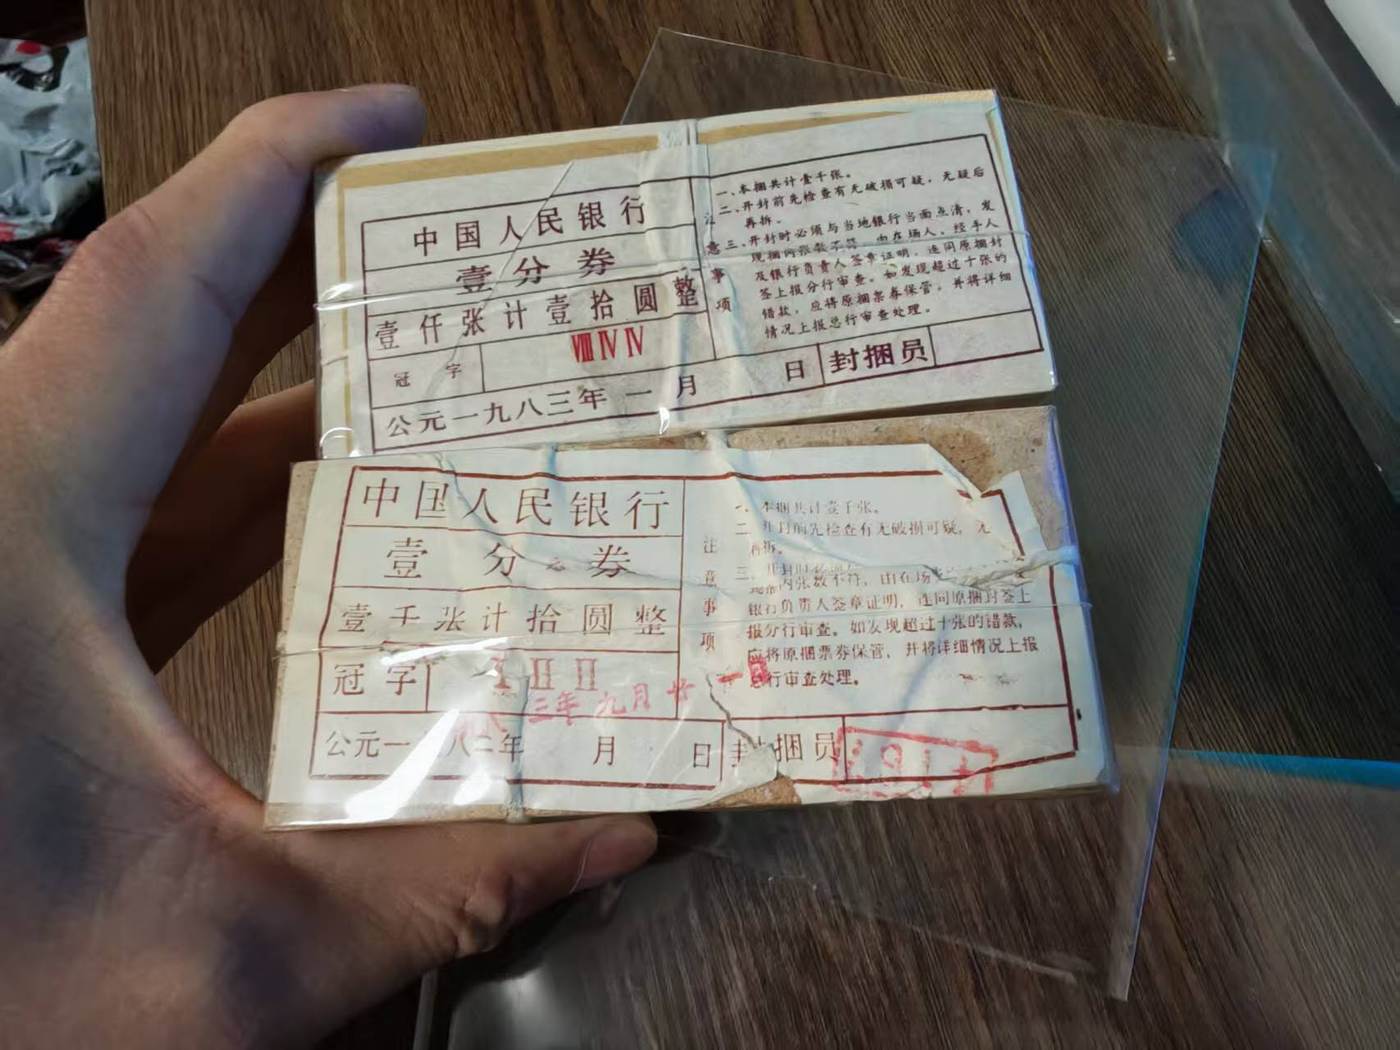 中国人民银行
壹分券
壹仟张计壹拾圆整
冠字
ⅧⅣⅣ
公元一九八三年一月 日
封捆员
注意事项
一、本捆共计壹千张。
二、开封前先检查有无破损可疑，无疑后
再拆。
三、开封时必须与当地银行当面点清，发
现捆内张数不符，由在场人、经手人
及银行负责人签章证明，连同原捆封
签上报分行审查。如发现超过十张的
错款，应将原捆票券保管，并将详细
情况上报总行审查处理。
中国人民银行
壹分券
壹千张计拾圆整
冠字
ⅠⅡⅡ
三年九月廿一
公元一 八二年 月 日
封捆员
注意事项
一、本捆共计壹千张。
二、开封前先检查有无破损可疑，无
再拆。
三、开封时必须
现捆内张数不符，由在场
银行负责人签章证明，连同原捆封签上
报分行审查。如发现超过十张的错款，
应将原捆票券保管，并将详细情况上报
总行审查处理。